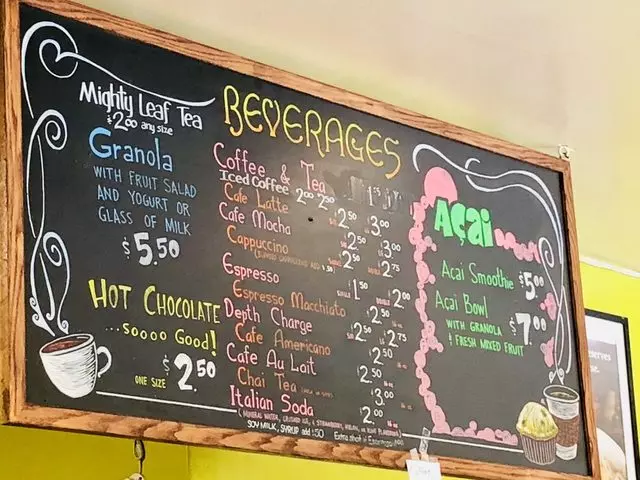 Mighty Leaf Tea
$2.00 any size
Granola
WITH FRUIT SALAD
AND YOGURT OR
GLASS OF MILK
$5.50
HOT CHOCOLATE
...SOOOO GOOD!
ONE SIZE $2.50
BEVERAGES
Coffee & Tea
Iced Coffee 2.00 2.50
Cafe Latte $2.50 $3.00
Cafe Mocha $2.50 $3.00
Cappuccino $2.50 $2.75
Espresso SINGLE $1.50 DOUBLE $2.00
Espresso Macchiato $2.50
Depth Charge $2.50 $2.75
Cafe Americano $2.50
Cafe Au Lait $2.50
Chai Tea $3.00
Italian Soda $2.00
SOY MILK, SYRUP add $.50 Extra shot of Espresso
AÇai
Açai Smoothie $5.00
Açai Bowl $7.00
WITH GRANOLA
& FRESH MIXED FRUIT